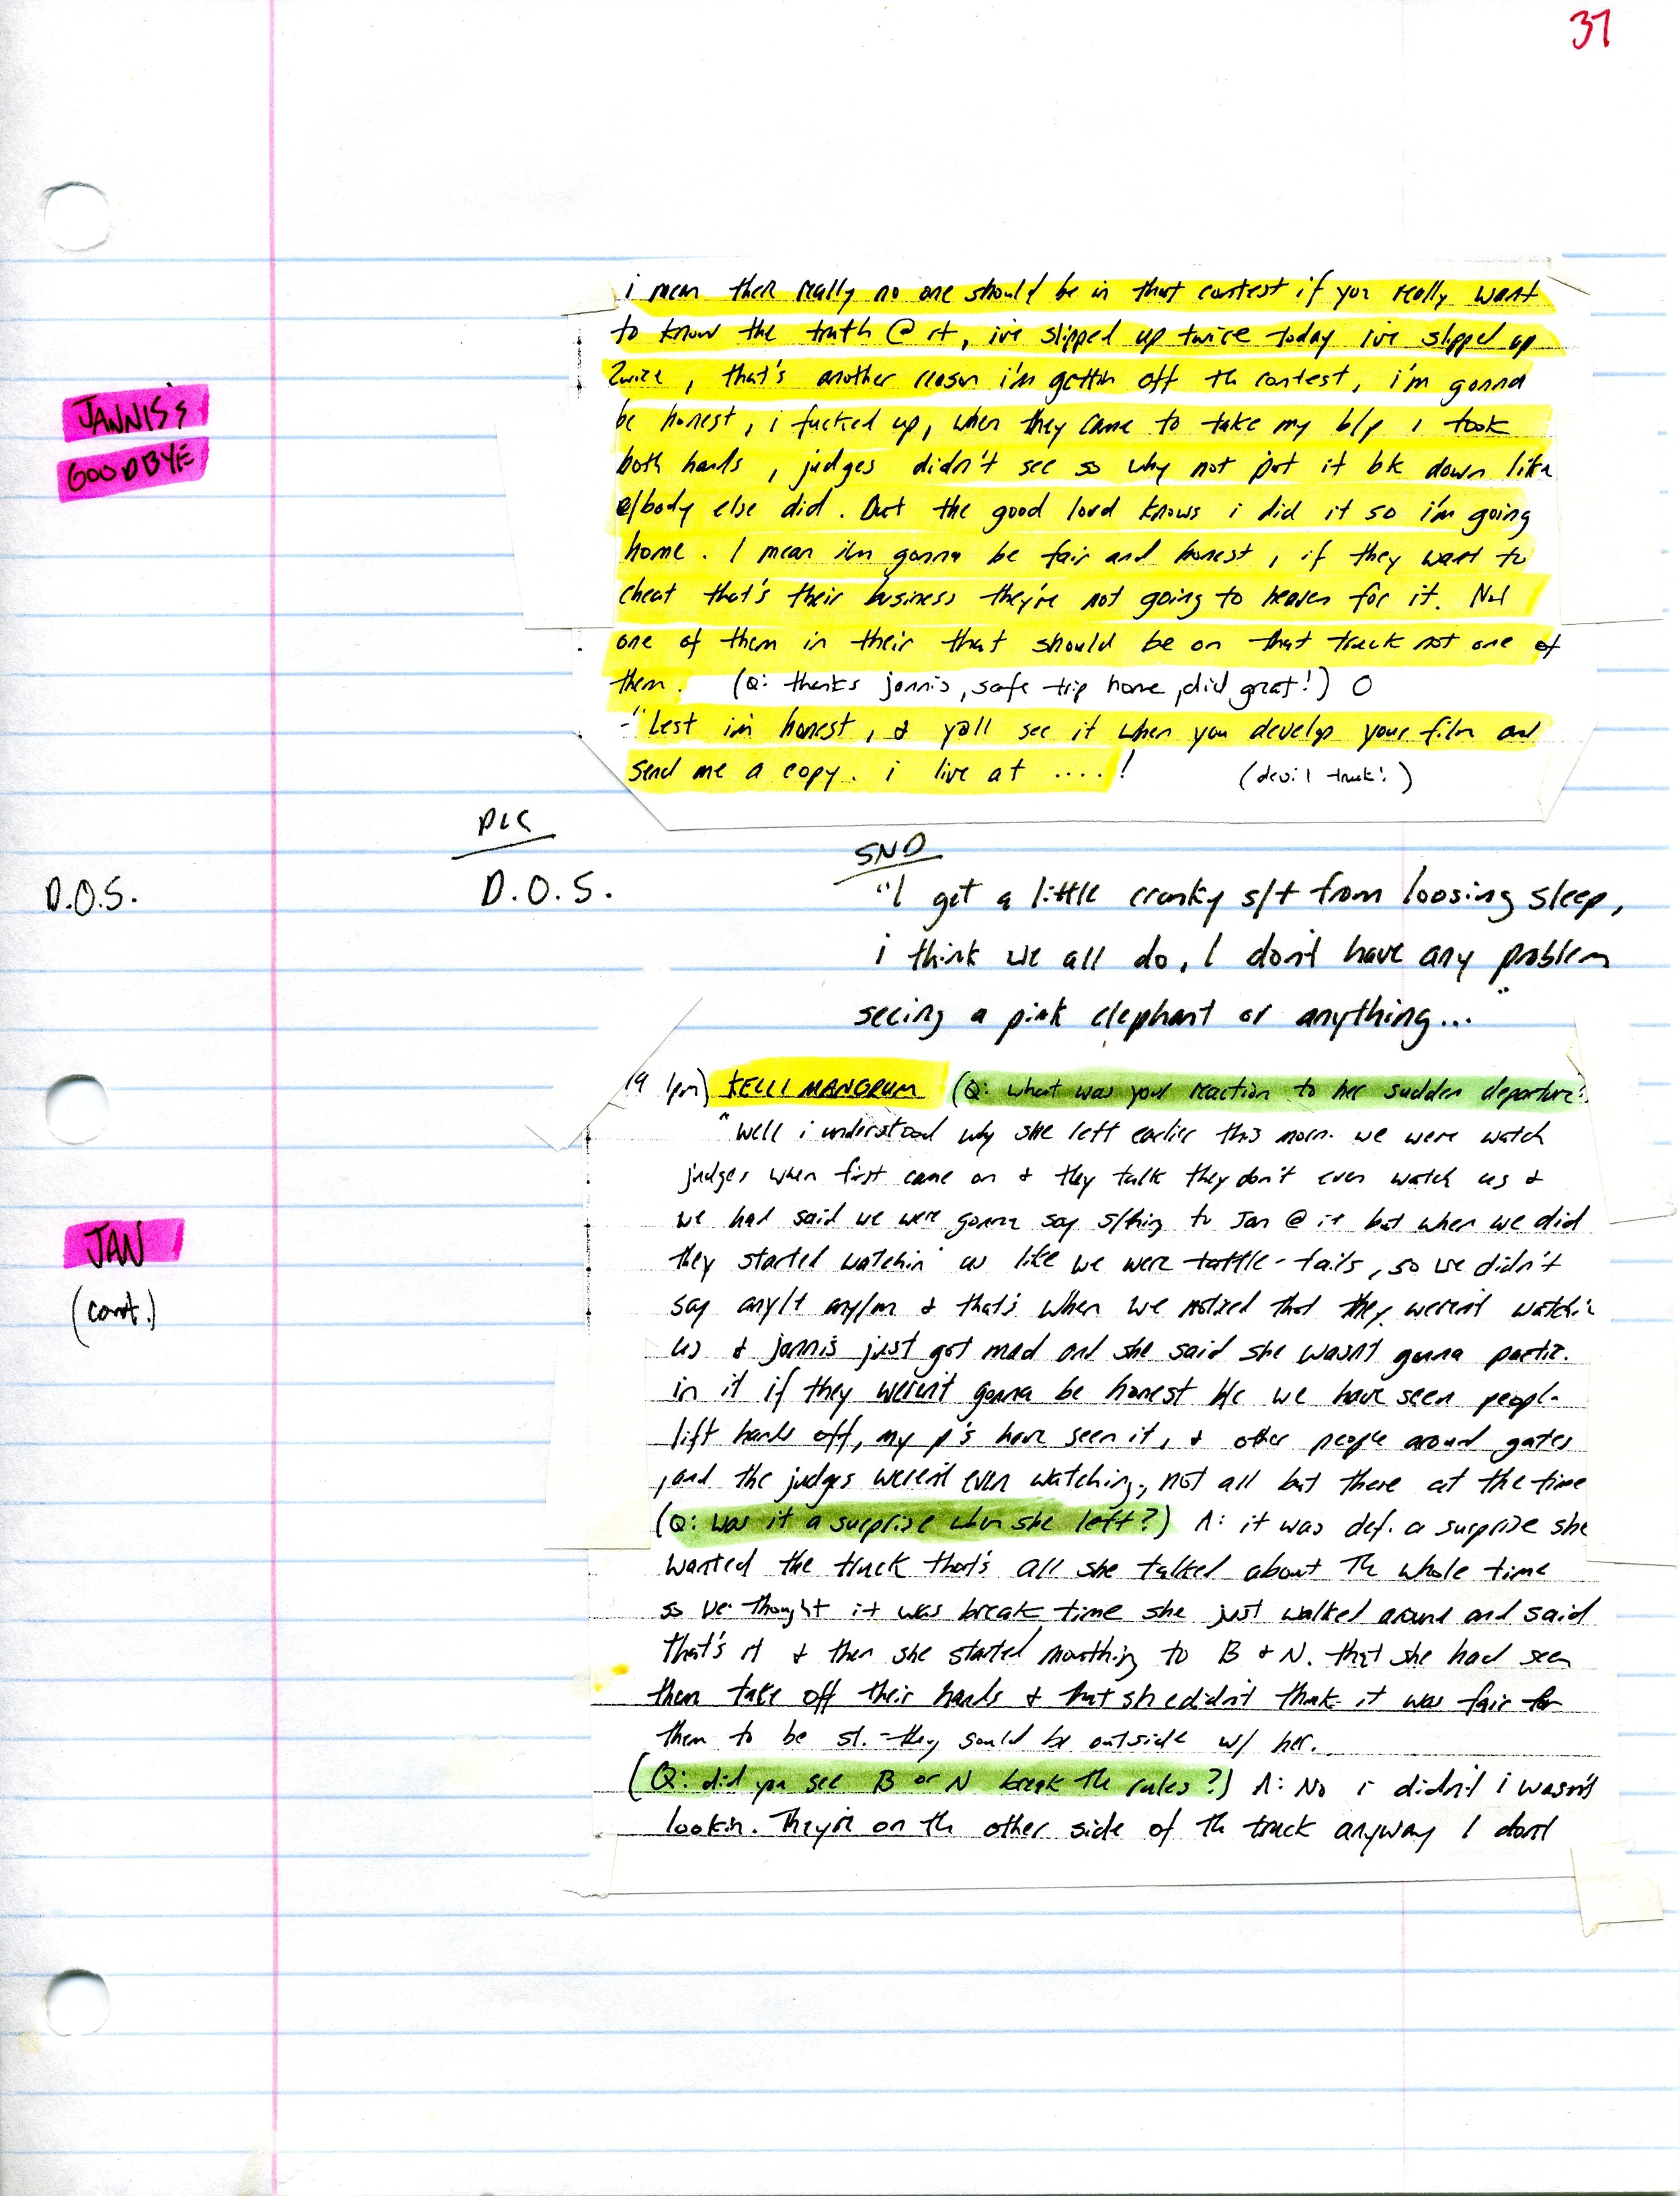 37
i mean then really no one should be in that contest if you really want
to know the truth @ it, i've slipped up twice today i've slipped up
2wice, that's another reason i'm gettin off th contest, i'm gonna
JANNIS'S
be honest, i fucked up, when they came to take my b/p i took
GOODBYE
both hands, judges didn't see so why not put it bk down like
e/body else did. But the good lord knows i did it so i'm going
home. I mean i'm gonna be fair and honest, if they want to
cheat that's their business they're not going to heaven for it. Not
one of them in their that should be on that truck not one of
them. (Q: thanks jannis, safe trip home, did great!) O
-"Lest i'm honest, & yall see it when you develop your film and
send me a copy. i live at ....! (devil truck!)
PIC
SND
D.O.S.
D.O.S.
"I get a little cranky s/t from loosing sleep,
i think we all do, I don't have any problem
seeing a pink elephant or anything..."
(9 1pm) KELLI MANGRUM (Q: what was your reaction to her sudden departure?
"Well i understood why she left earlier this morn. we were watch
judges when first came on & they talk they don't even watch us &
JAN
we had said we were gonna say s/thing to Jan @ it but when we did
they started watchin us like we were tattle-tails, so we didn't
(cont.)
say any/t any/m & that's when we noticed that they weren't watchi
us & jannis just got mad and she said she wasn't gonna partic.
in it if they weren't gonna be honest b/c we have seen peopl
lift hands off, my p's have seen it, & other people around gates
, and the judges weren't even watching, not all but there at the time
(Q: was it a surprise when she left?) A: it was def. a surprise she
wanted the truck that's all she talked about Th whole time
so we thought it was break time she just walked around and said
that's it & then she started mouthing to B & N. that she had seen
them take off their hands & that she didn't think it was fair for
them to be st. - they sould be outside w/ her.
(Q: did you see B or N break th rules?) A: No i didn't i wasn't
lookin. They're on th other side of th truck anyway I don't